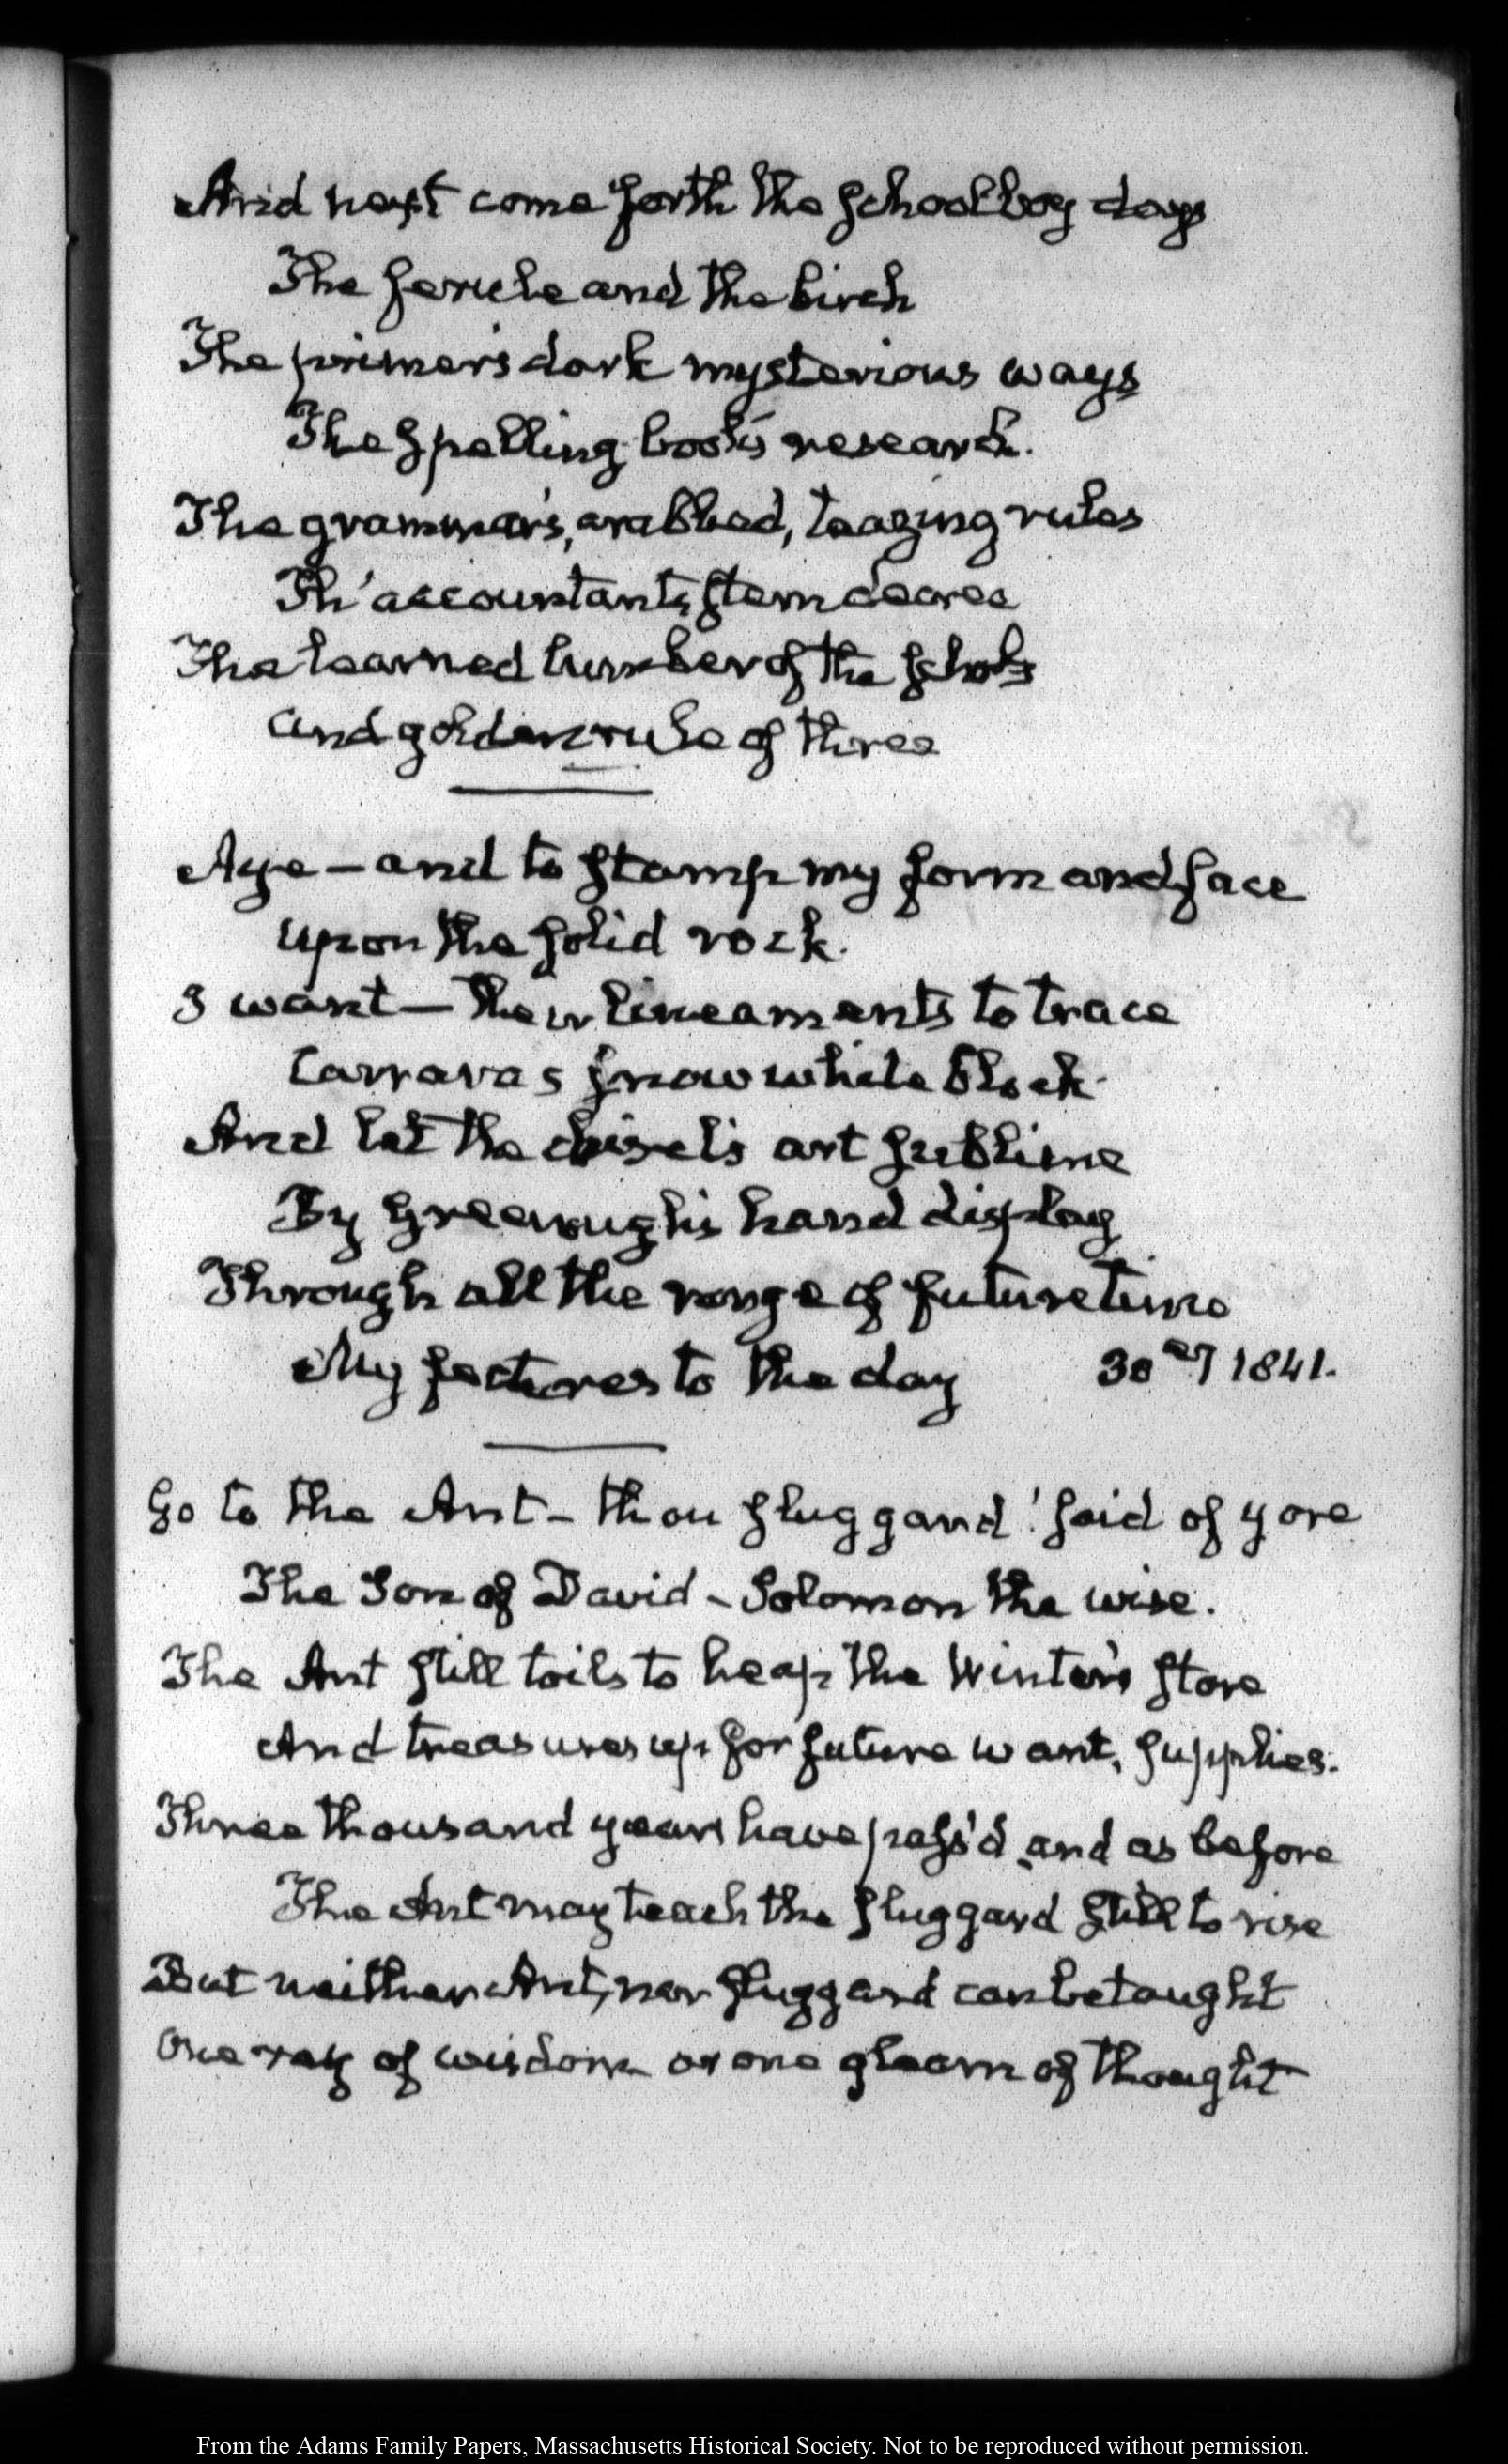 And next come forth the schoolboy days
The ferule and the birch
The primer's dark mysterious ways
The Spelling book's research.
The grammar's, crabbed, teazing rules
Th' accountant's stern decree
The learned lumber of the schools
And golden rule of three
Aye—and to stamp my form and face
Upon the solid rock.
I want—their lineaments to trace
Carrara's snow white block.
And let the chisel's art sublime
By Greenough's hand display
Through all the range of future time
My features to the day
30 1841.
Go to the Ant—thou sluggard! said of yore
The Son of David—Solomon the wise.
The Ant still toils to heap the Winter's store
And treasures up for future want, supplies.
Three thousand years have pass'd and as before
The Ant may teach the sluggard still to rise
But neither Ant, nor sluggard can be taught
One ray of wisdom or one gleam of thought
From the Adams Family Papers, Massachusetts Historical Society. Not to be reproduced without permission.